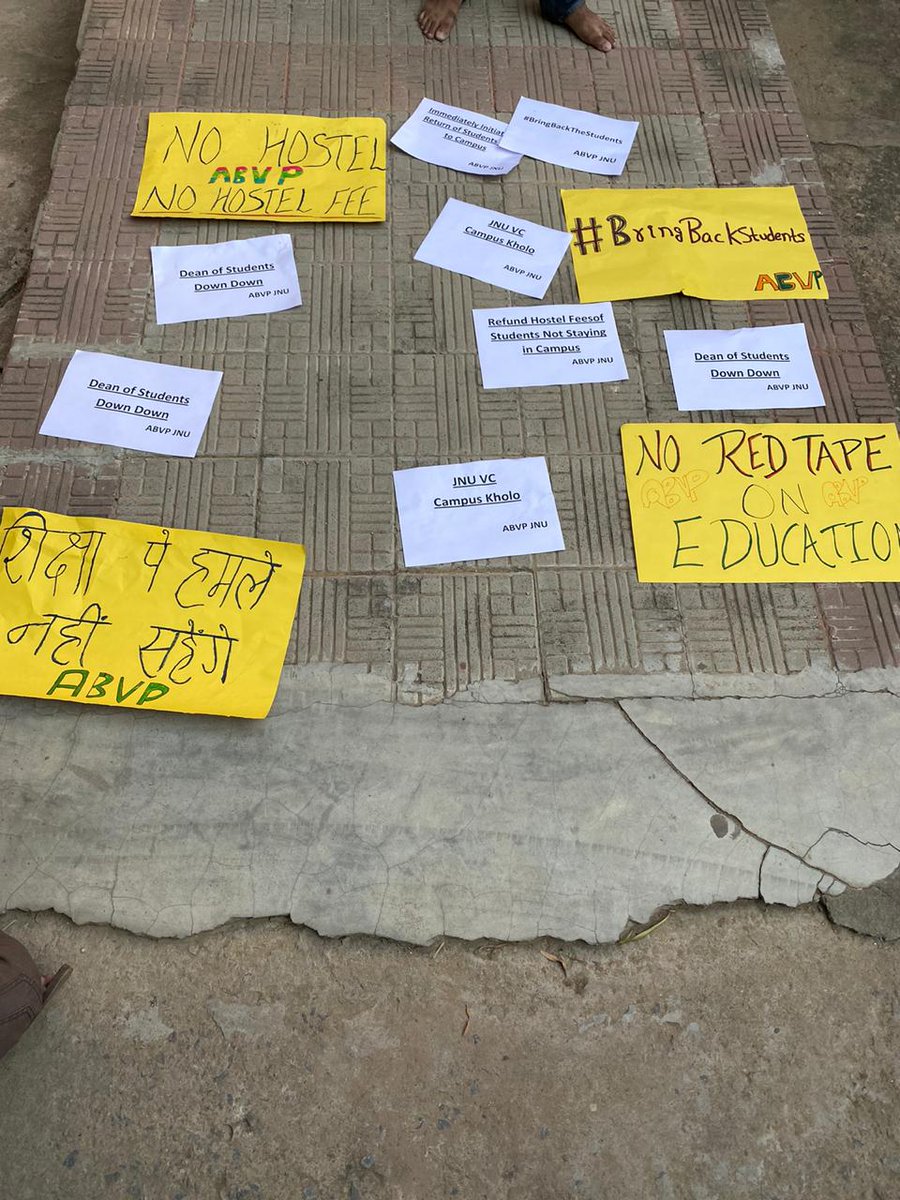 NO HOSTEL
ABVP
NO HOSTEL FEE
Immediately Initiat
Return of Students
to Campus
ABVP JNU
#BringBackTheStudents
ABVP JNU
JNU VC
Campus Kholo
ABVP JNU
#BringBackStudents
ABVP
Dean of Students
Down Down
ABVP JNU
Refund Hostel Feesof
Students Not Staying
in Campus
ABVP JNU
Dean of Students
Down Down
ABVP JNU
Dean of Students
Down Down
ABVP JNU
NO RED TAPE
ABVP ON ABVP
EDUCATION
JNU VC
Campus Kholo
ABVP JNU
शिक्षा पे हमले
नहीं सहेंगे
ABVP